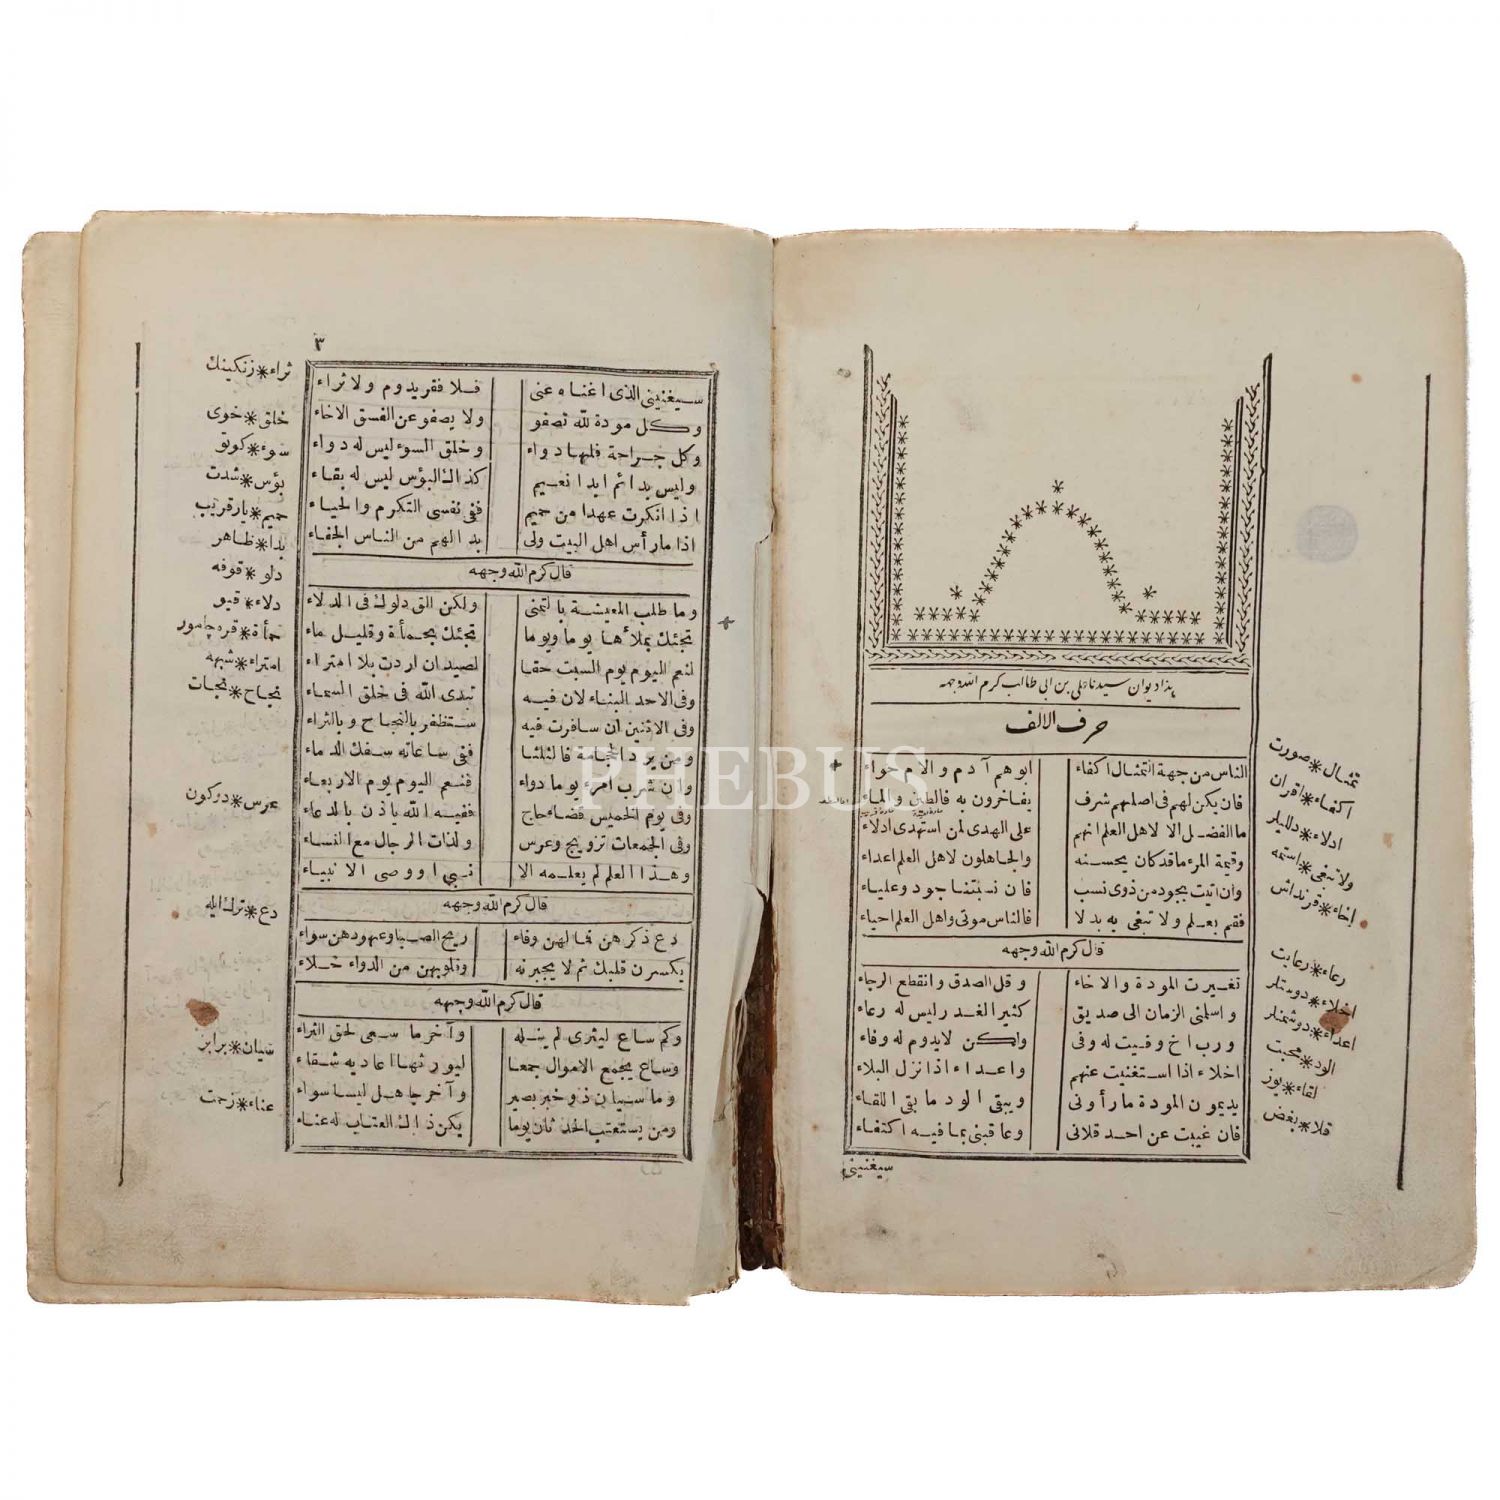 هذا ديوان سيدنا علي بن ابى طالب كرم الله وجهه
حرف الالف
الناس من جهة التمثال اكفاء ابوهم آدم والام حواء
فان يكن لهم فى اصلهم شرف يفاخرون به فالطين والماء
ما الفضل الا لاهل العلم انهم على الهدى لمن استهدى ادلاء
وقيمة المرء ما قد كان يحسنه والجاهلون لاهل العلم اعداء
وان اتيت بجود من ذوى نسب فان نسبتنا جود وعلياء
فقم بعلم ولا تبغى به بدلا فالناس موتى واهل العلم احياء
قال كرم الله وجهه
تغيرت المودة والاخاء وقل الصدق وانقطع الرجاء
واسلمنى الزمان الى صديق كثير الغدر ليس له رعاء
ورب اخ وفيت له وفى ولكن لا يدوم له وفاء
اخلاء اذا استغنيت عنهم واعداء اذا نزل البلاء
يديمون المودة ما رأونى ويبقى الود ما بقى اللقاء
فان غيبت عن احد قلانى وعاقبنى بما فيه اكتفاء
سيغنينى
تمثال * صورت
اكفاء * اقران
ادلاء * دليللر
ولا تبغى * استمه
اخاء * قرنداش
رعاء * رعايت
اخلاء * دوستلر
اعداء * دوشمنلر
الود * محبت
لقاء * يوز
قلا * بغض
٣
سيغنينى الذى اغناه عنى فلا فقر يدوم ولا ثراء
وكل مودة لله تصفو ولا يصفو عن الفسق الاخاء
وكل جراحة فلها دواء وخلق السوء ليس له دواء
وليس بدائم ابدا نعيم كذاك البؤس ليس له بقاء
اذا انكرت عهدا من حميم ففى نفسى التكرم والحياء
اذا ما رأس اهل البيت ولى بدا لهم من الناس الجفاء
قال كرم الله وجهه
وما طلب المعيشة بالتمنى ولكن الق دلوك فى الدلاء
تجئك بملأها يوما ويوما تجئك بحمأة وقليل ماء
لنعم اليوم يوم السبت حقا لصيد ان اردت بلا امتراء
وفى الاحد البناء لان فيه تبدى الله فى خلق السماء
وفى الاثنين ان سافرت فيه ستظفر بالنجاح وبالثراء
ومن يرد الحجامة فالثلثا ففى ساعاته سفك الدماء
وان شرب امرء يوما دواء فنعم اليوم يوم الاربعاء
وفى يوم الخميس قضاء حاج ففيه الله ياذن بالدعاء
وفى الجمعات ترويج وعرس ولذات الرجال مع النساء
وهذا العلم لم يعلمه الا نبى او وصى الانبياء
قال كرم الله وجهه
دع ذكرهن فما لهن وفاء ريح الصبا وعهودهن سواء
يكسرن قلبك ثم لا يجبرنه وقلوبهن من الدواء خلاء
قال كرم الله وجهه
وكم ساع ليثرى لم ينله وآخر ما سعى لحق الثراء
وساع يجمع الاموال جمعا ليورثها اعاديه شقاء
وما سيان ذو خبر بصير وآخر جاهل ليسا سواء
ومن يستعتب الحدثان يوما يكن ذاك العتاب له عناء
ثراء * زنكينلك
خلق * خوى
سوء * كوتو
بؤس * شدت
حميم * يار قريب
بدا * ظاهر
دلو * قوفه
دلاء * قيو
حمأة * قره چامور
امتراء * شبهه
نجاح * نجات
عرس * دركون
دع * ترك ايله
سيان * برابر
عناء * زحمت
PHEBUS